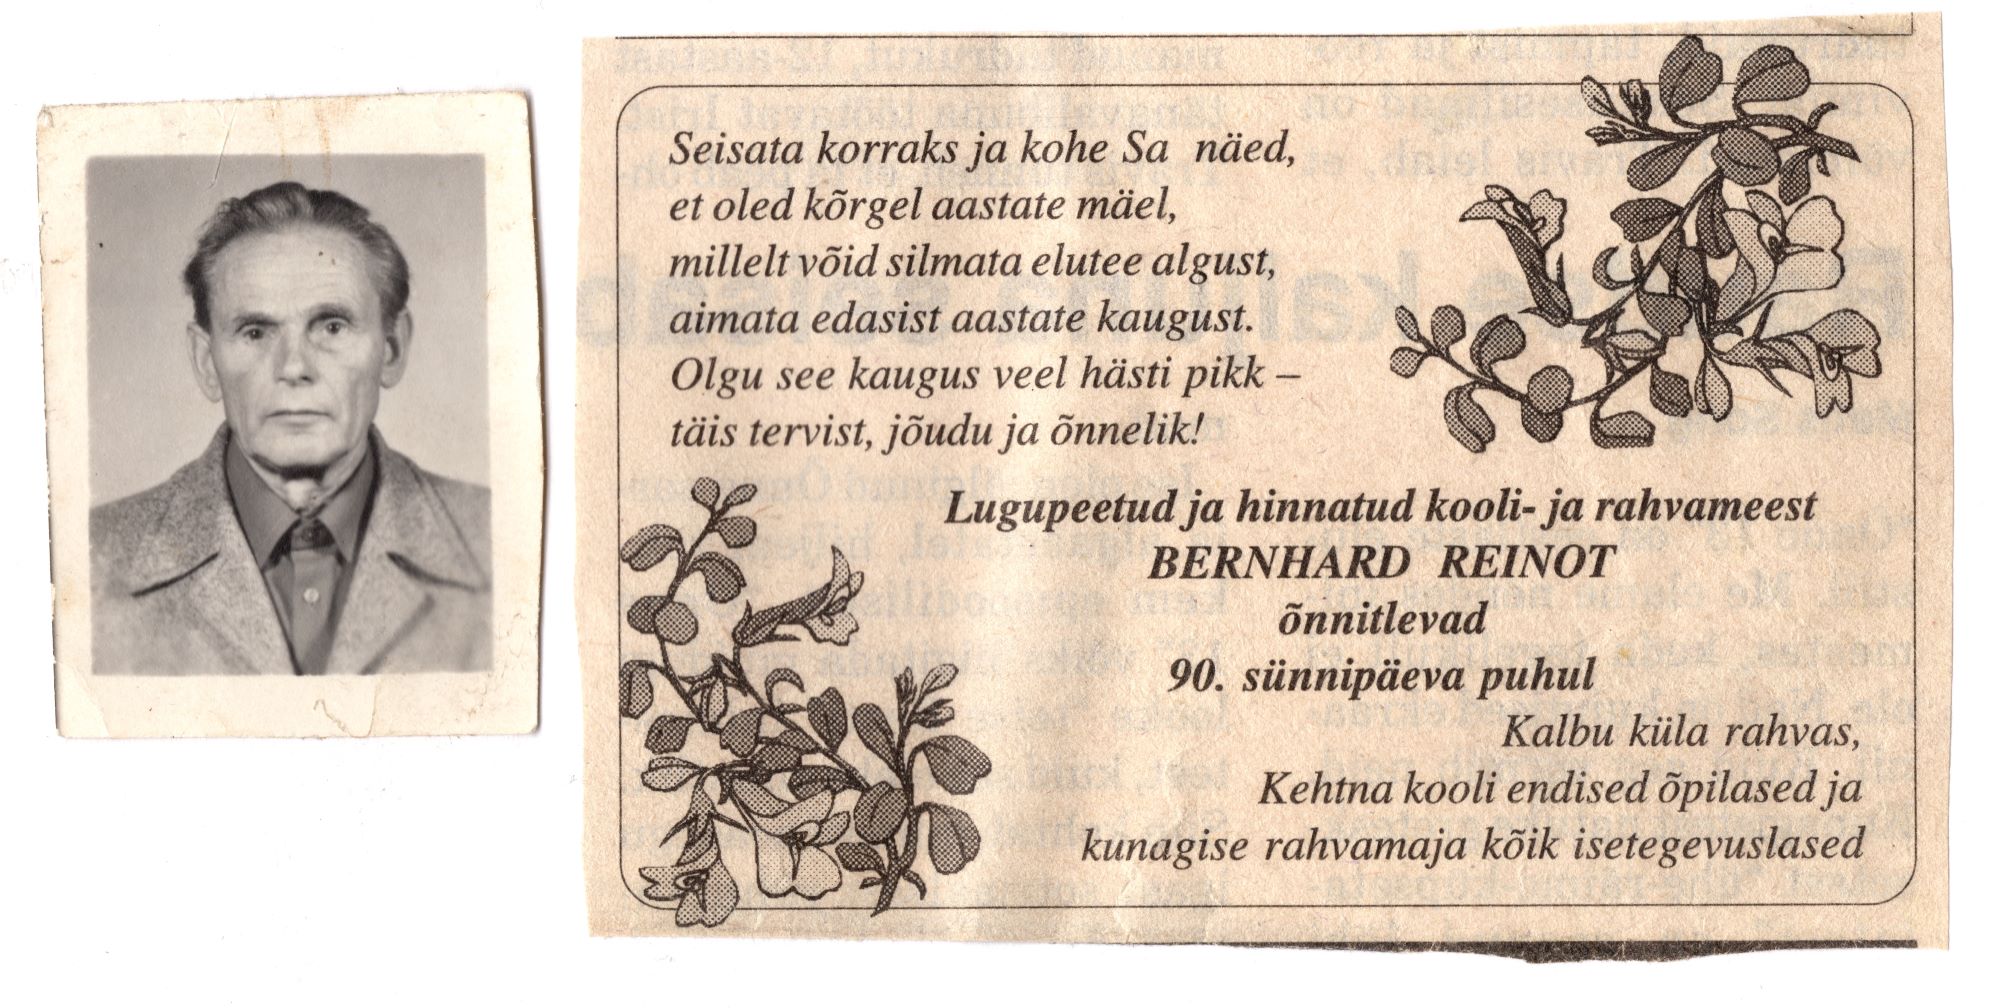 Seisata korraks ja kohe Sa näed,
et oled kõrgel aastate mäel,
millelt võid silmata elutee algust,
aimata edasist aastate kaugust.
Olgu see kaugus veel hästi pikk –
täis tervist, jõudu ja õnnelik!
Lugupeetud ja hinnatud kooli- ja rahvameest
BERNHARD REINOT
õnnitlevad
90. sünnipäeva puhul
Kalbu küla rahvas,
Kehtna kooli endised õpilased ja
kunagise rahvamaja kõik isetegevuslased